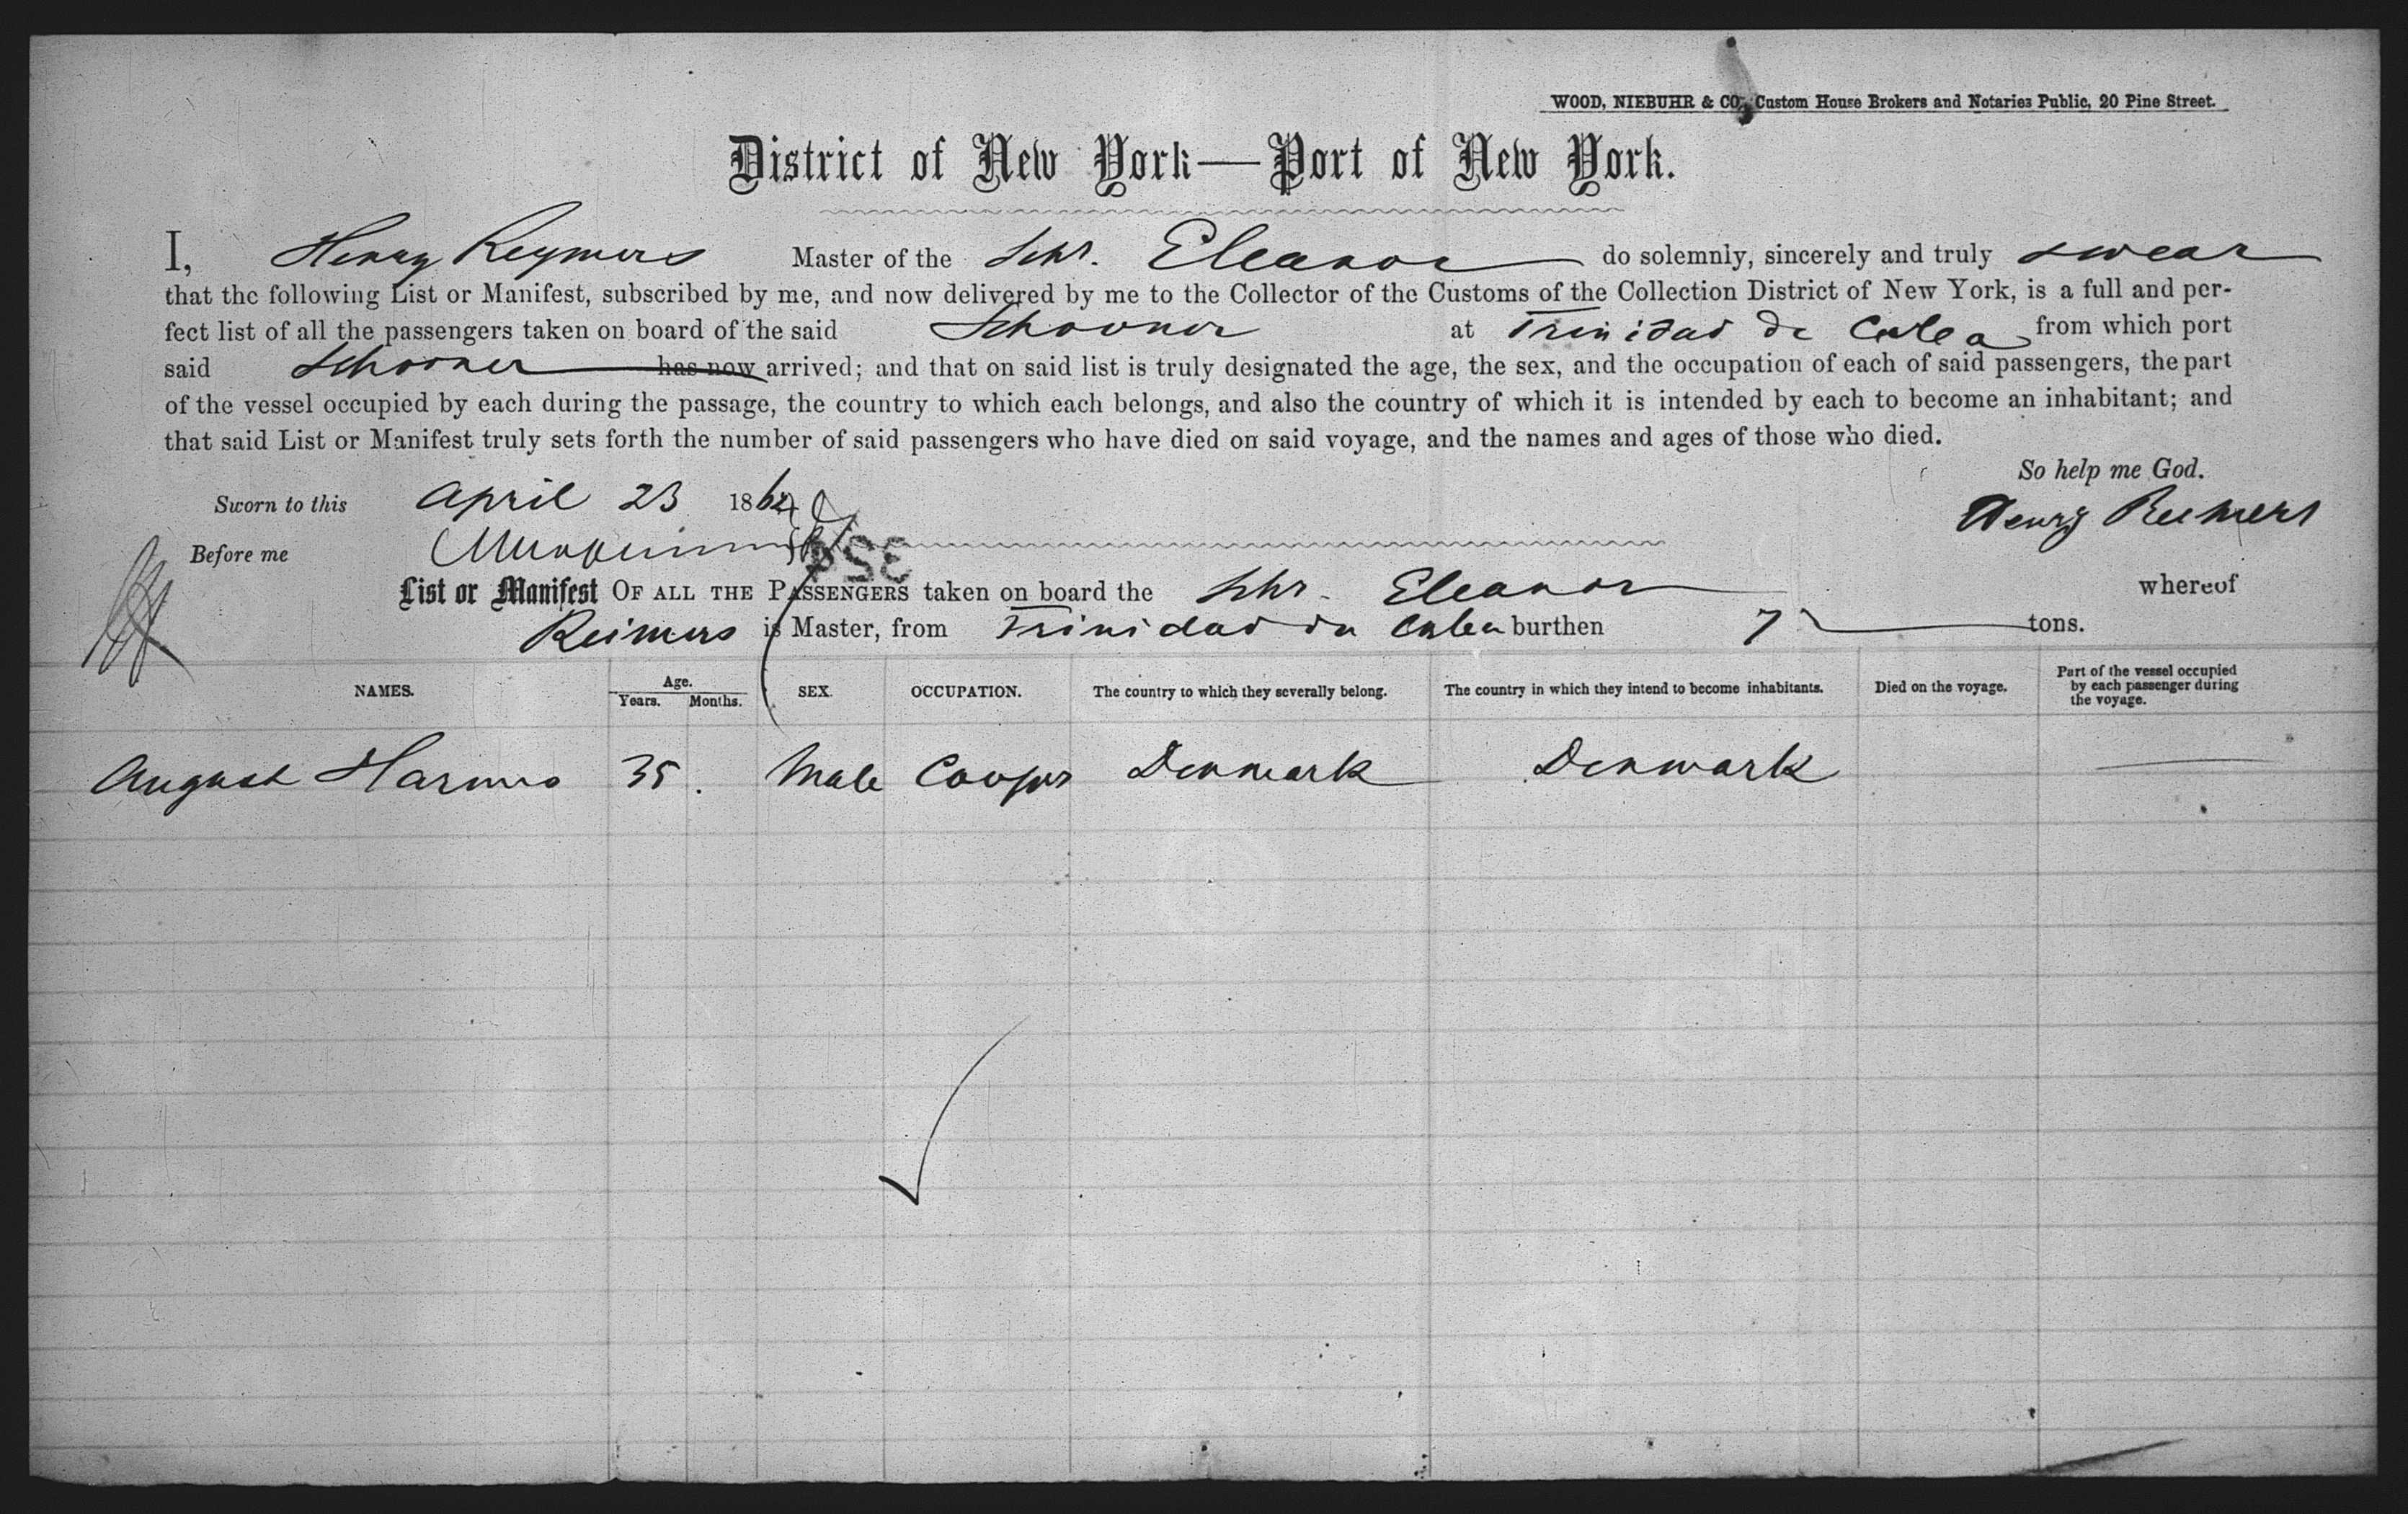 WOOD, NIEBUHR & CO., Custom House Brokers and Notaries Public, 20 Pine Street.
District of New York—Port of New York.
I, Henry Reymers Master of the Schr. Eleanor do solemnly, sincerely and truly swear
that the following List or Manifest, subscribed by me, and now delivered by me to the Collector of the Customs of the Collection District of New York, is a full and per-
fect list of all the passengers taken on board of the said Schooner at Trinidad de Cuba from which port
said Schooner has now arrived; and that on said list is truly designated the age, the sex, and the occupation of each of said passengers, the part
of the vessel occupied by each during the passage, the country to which each belongs, and also the country of which it is intended by each to become an inhabitant; and
that said List or Manifest truly sets forth the number of said passengers who have died on said voyage, and the names and ages of those who died.
So help me God.
Sworn to this April 23 186
Henry Reimers
Before me
354
List or Manifest OF ALL THE PASSENGERS taken on board the Schr. Eleanor whereof
Reimers is Master, from Trinidad de Cuba burthen tons.
NAMES. Age. Years. Months. SEX. OCCUPATION. The country to which they severally belong. The country in which they intend to become inhabitants. Died on the voyage. Part of the vessel occupied by each passenger during the voyage.
August Harms 35. Male Cooper Denmark Denmark